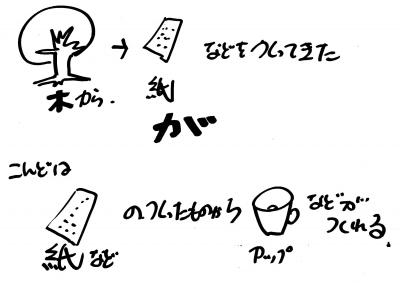 木から.
紙
などをつくってきた
が
こんどは
紙など
のつくったものから
などが
つくれる.